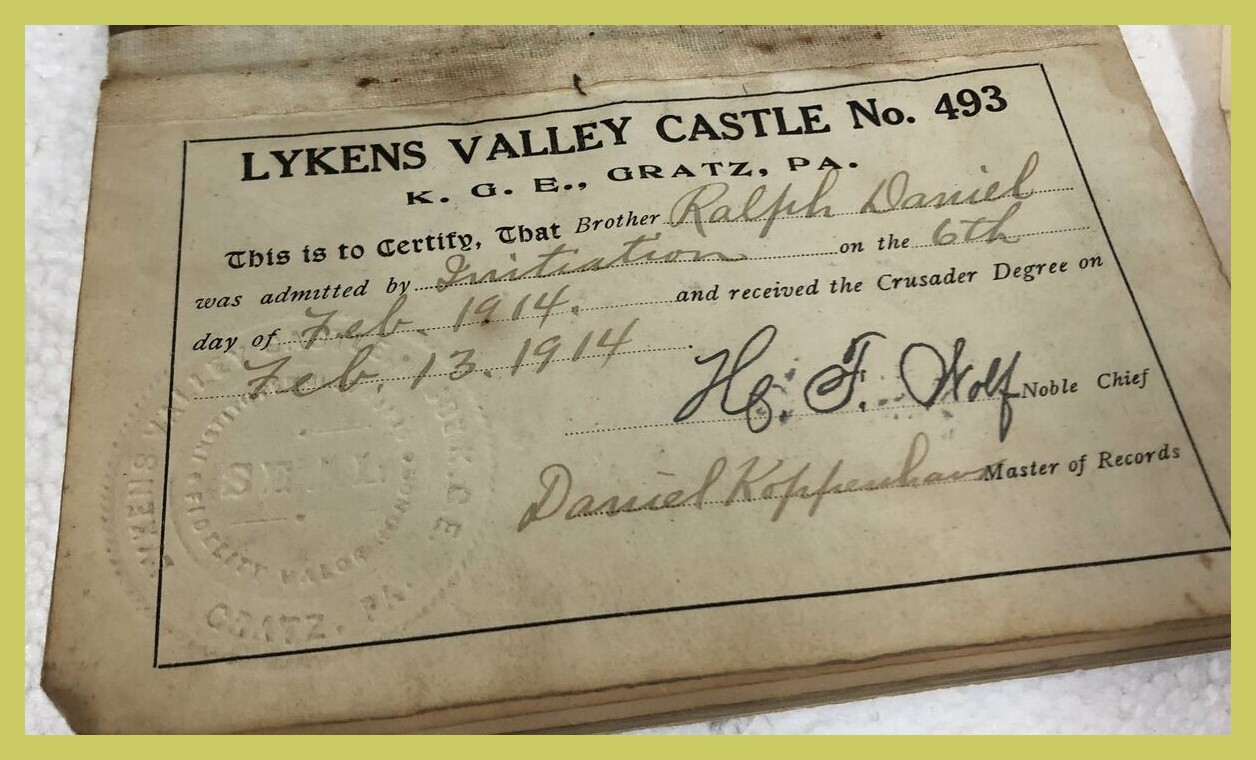 LYKENS VALLEY CASTLE No. 493
K. G. E., GRATZ, PA.
This is to Certify, That Brother Ralph Daniel
was admitted by Initiation on the 6th
day of Feb. 1914. and received the Crusader Degree on
Feb. 13. 1914.
H. F. Wolf Noble Chief
Daniel Koppenhaver Master of Records
LYKENS VALLEY K.G.E.
FIDELITY VALOR HONOR
SEAL
GRATZ, PA.